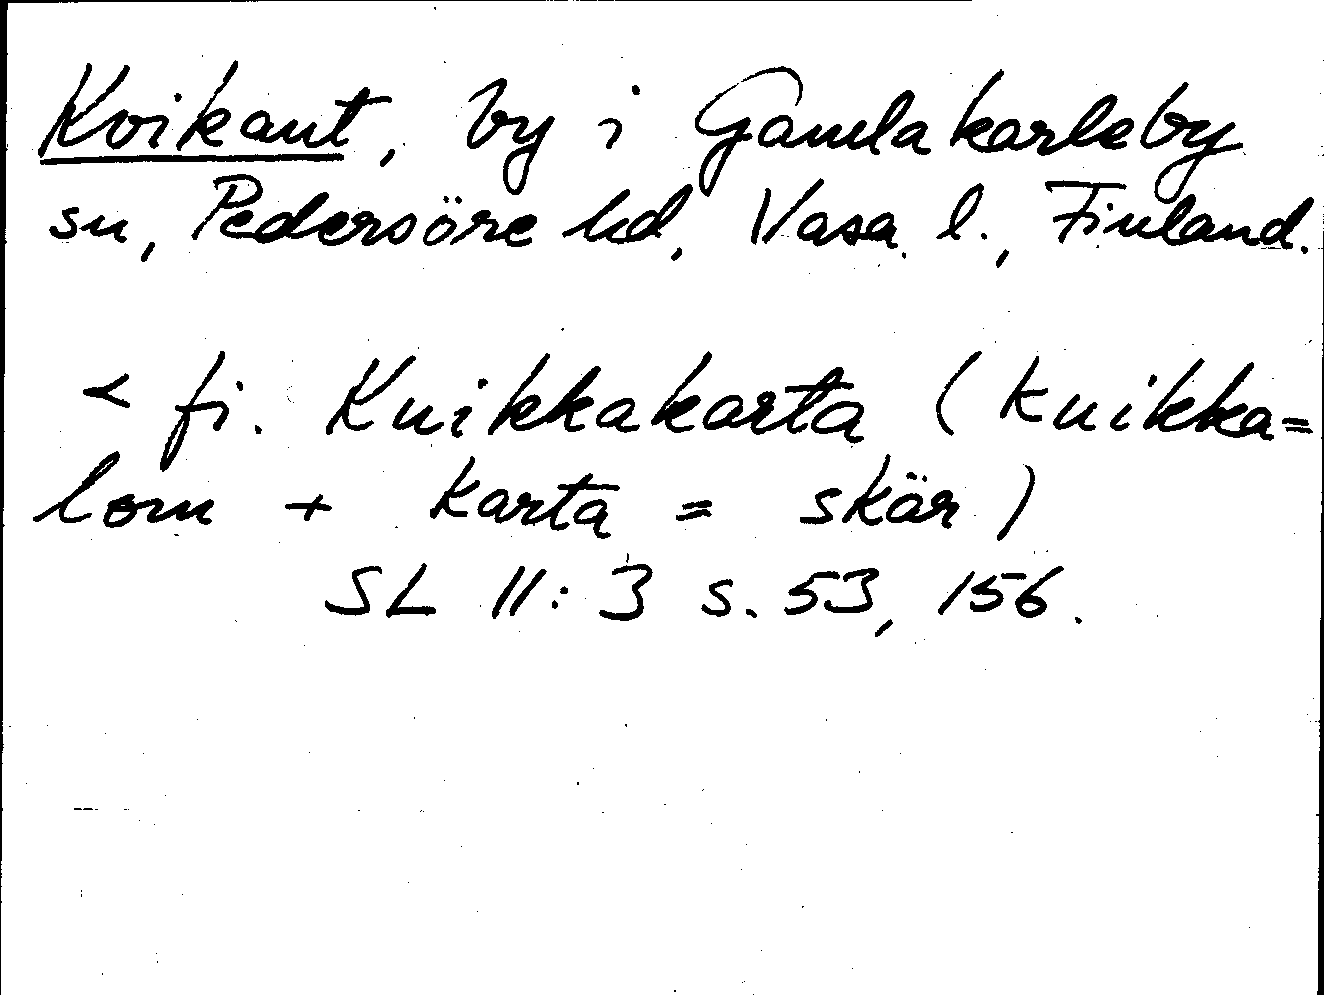 Kvikant, by i Gamlakarleby
sn, Pedersöre hd, Vasa l., Finland.
< fi. Kuikkakarta (kuikka=
lom + karta = skär)
SL II:3 s. 53, 156.